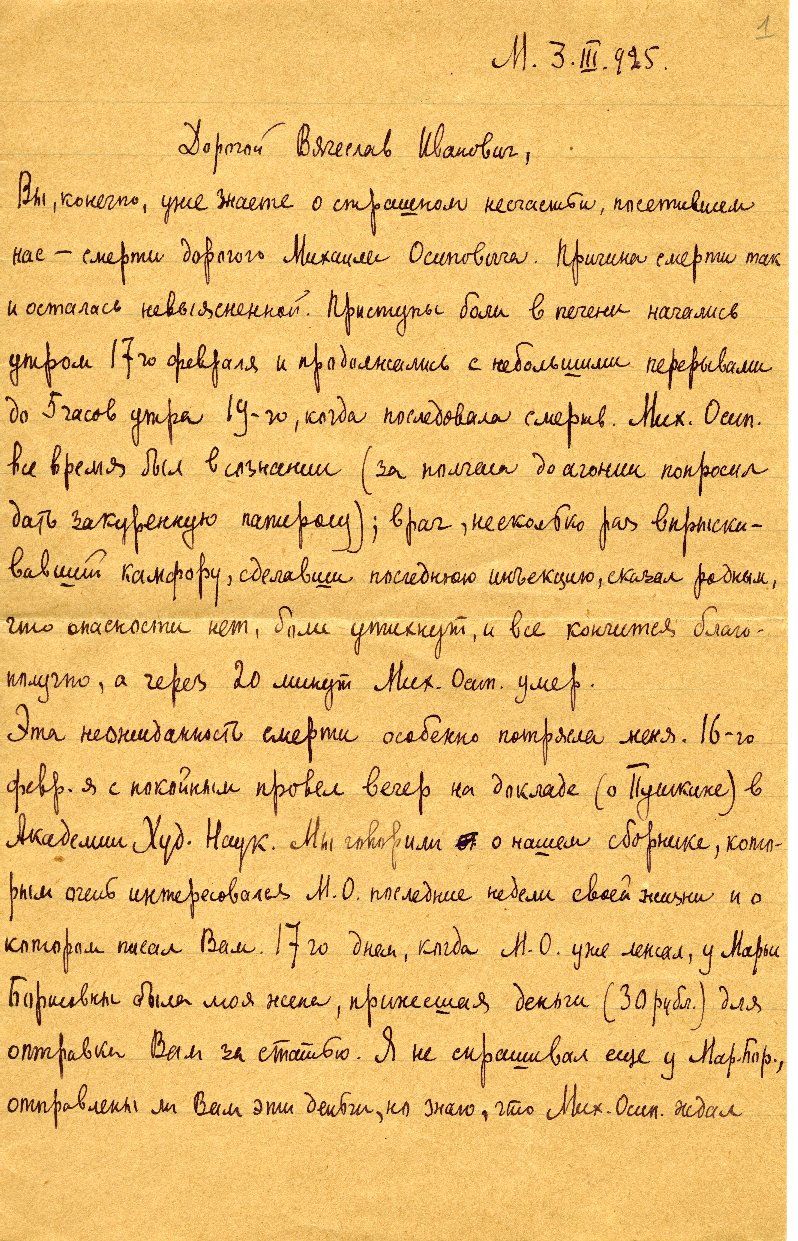 1
М. 3.III.925.
Дорогой Вячеслав Иванович,
Вы, конечно, уже знаете о страшном несчастьи, посетившем
нас — смерти дорогого Михаила Осиповича. Причина смерти так
и осталась невыясненной. Приступы боли в печени начались
утром 17го февраля и продолжались с небольшими перерывами
до 5 часов утра 19-го, когда последовала смерть. Мих. Осип.
все время был в сознании (за полчаса до агонии попросил
дать закуренную папиросу); врач, несколько раз впрыски-
вавший камфору, сделавши последнюю инъекцию, сказал родным,
что опасности нет, боли утихнут, и все кончится благо-
получно, а через 20 минут Мих. Осип. умер.
Эта неожиданность смерти особенно потрясла меня. 16-го
февр. я с покойным провел вечер на докладе (о Пушкине) в
Академии Худ. Наук. Мы говорили о нашем сборнике, кото-
рым очень интересовался М.О. последние недели своей жизни и о
котором писал Вам. 17го днем, когда М.О. уже лежал, у Марьи
Борисовны была моя жена, принесшая деньги (30 рубл.) для
отправки Вам за статью. Я не спрашивал еще у Мар. Бор.,
отправлены ли Вам эти деньги, но знаю, что Мих. Осип. ждал